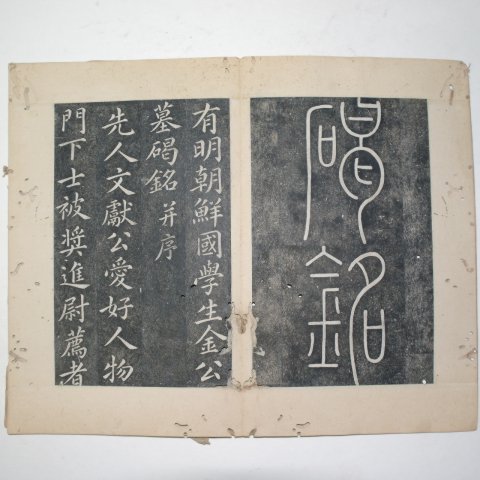 碣銘
有明朝鮮國學生金公
墓碣銘 并序
先人文獻公愛好人物
門下士被奬進尉薦者